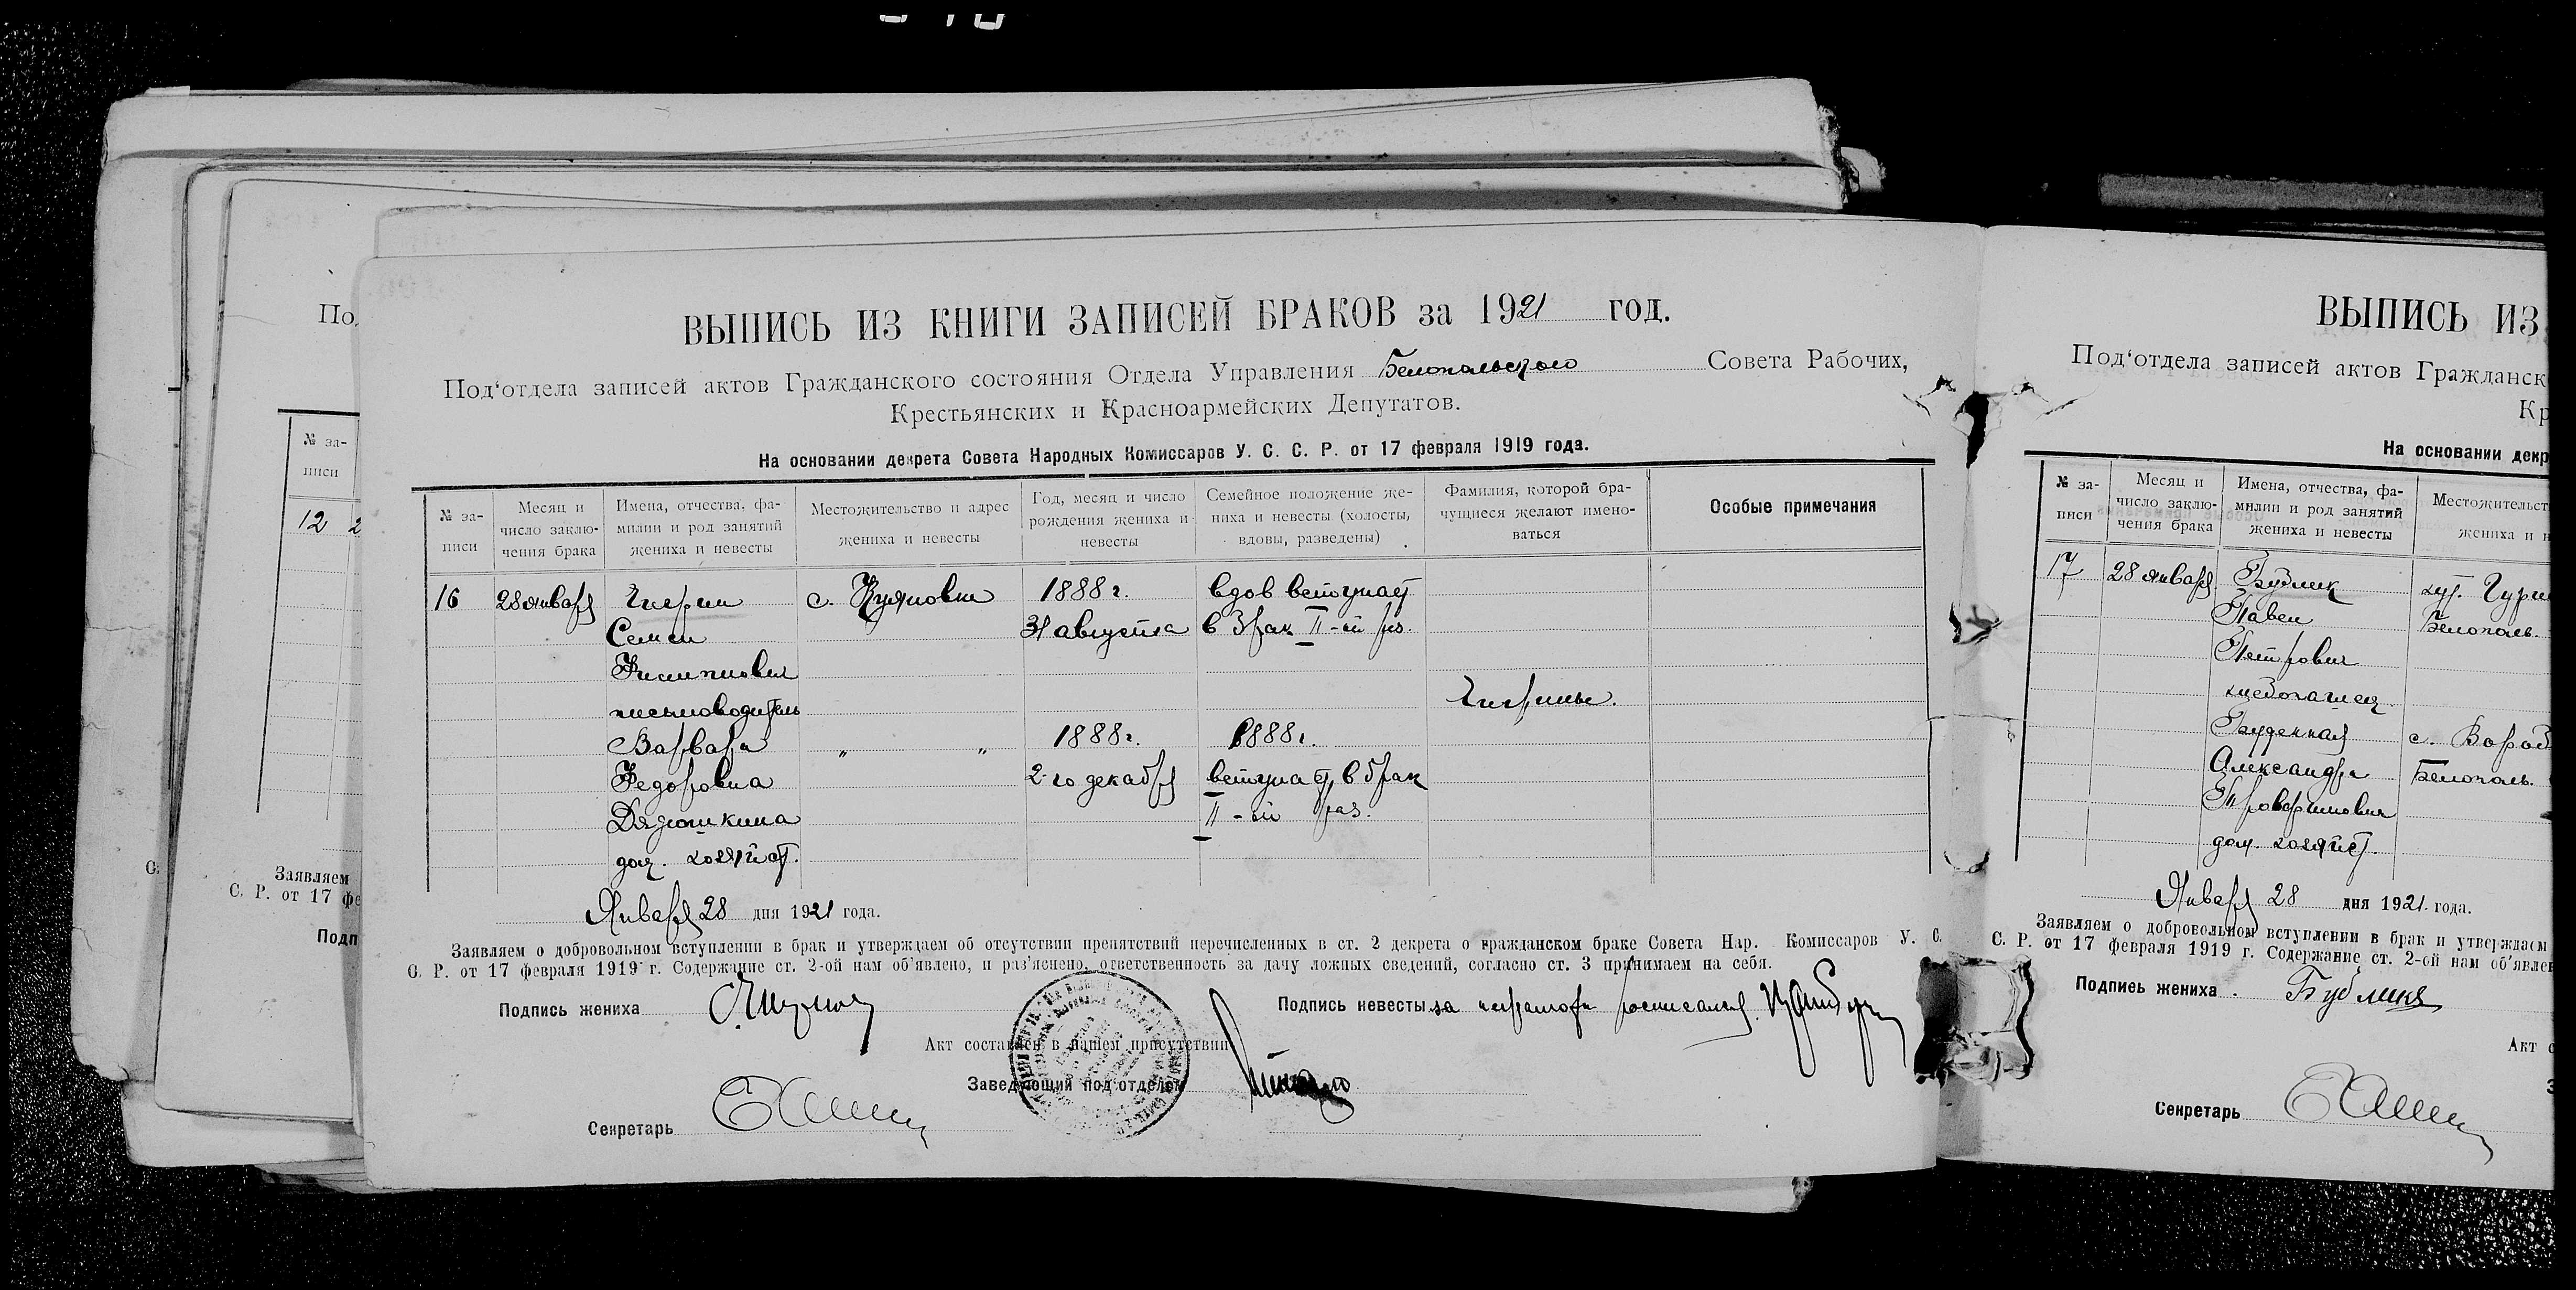 ВЫПИСЬ ИЗ КНИГИ ЗАПИСЕЙ БРАКОВ за 1921 год.
Под‘отдела записей актов Гражданского состояния Отдела Управления Белопольского Совета Рабочих,
Крестьянских и Красноармейских Депутатов.
На основании декрета Совета Народных Комиссаров У. С. С. Р. от 17 февраля 1919 года.
№ за-
писи
Месяц и
число заклю-
чения брака
Имена, отчества, фа-
милии и род занятий
жениха и невесты
Местожительство и адрес
жениха и невесты
Год, месяц и число
рождения жениха и
невесты
Семейное положение же-
ниха и невесты (холосты,
вдовы, разведены)
Фамилия, которой бра-
чущиеся желают имено-
ваться
Особые примечания
16
28 января
Чигрин
Семен
Филиппович
письмоводитель
Варвара
Федоровна
Дядюшкина
дом. хозяйст.
с. Куяновки
„ „
1888 г.
31 августа
1888 г.
2-го декабря
вдов вступает
в брак II-ой раз.
1888 г.
вступает в брак
II-ой раз.
Чигрины.
Января 28 дня 1921 года.
Заявляем о добровольном вступлении в брак и утверждаем об отсутствии препятствий перечисленных в ст. 2 декрета о гражданском браке Совета Нар. Комиссаров У. С.
С. Р. от 17 февраля 1919 г. Содержание ст. 2-ой нам об‘явлено, и раз‘яснено, ответственность за дачу ложных сведений, согласно ст. 3 принимаем на себя.
Подпись жениха
Подпись невесты за неграмотн росписался
Акт составлен в нашем присутствии
Заведующий под‘отделом
Секретарь
По
№ за-
писи
12 2
С.
Заявляем
С. Р. от 17 фе
Подп
ВЫПИСЬ ИЗ
Под‘отдела записей актов Гражданск
Кр
На основании декр
№ за-
писи
Месяц и
число заклю-
чения брака
Имена, отчества, фа-
милии и род занятий
жениха и невесты
Местожительст
жениха и н
17
28 января
Бублик
Павел
Петрович
хлебопашец
Буденная
Александра
дом. хозяйст.
хут. Гури
Белополь.
Белополь.
Января 28 дня 1921 года.
Заявляем о добровольном вступлении в брак и утверждаем
С. Р. от 17 февраля 1919 г. Содержание ст. 2-ой нам об‘явле
Подпись жениха Бублик
Акт с
З
Секретарь